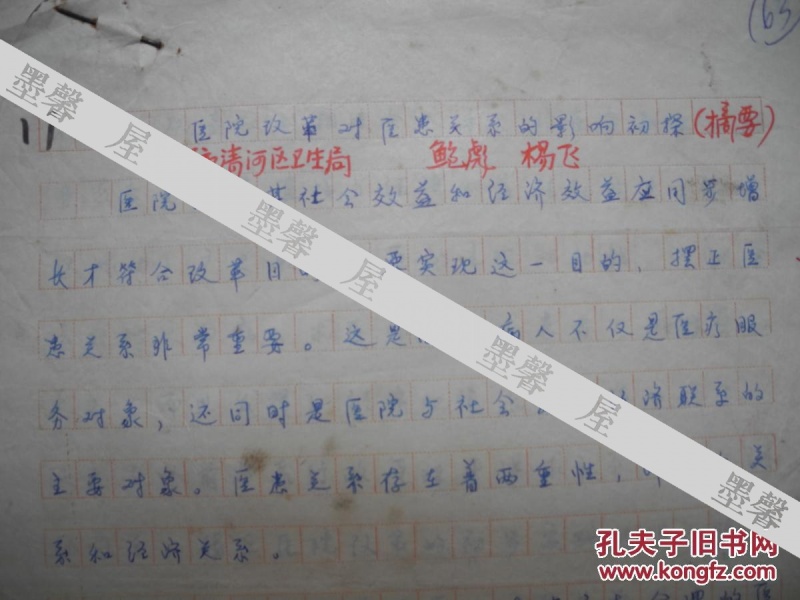 (63
11
医院改革对医患关系的影响初探(摘要)
清河区卫生局 鲍彪 杨飞
医院 其社会效益和经济效益应同步增
长才符合改革目 要实现这一目的，摆正医
患关系非常重要。这是 病人不仅是医疗服
务对象，还同时是医院与社会 济联系的
主要对象。医患关系存在着两重性， 关
系和经济关系。
墨馨屋
墨馨屋
墨馨屋
墨馨屋
孔夫子旧书网
www.kongfz.com